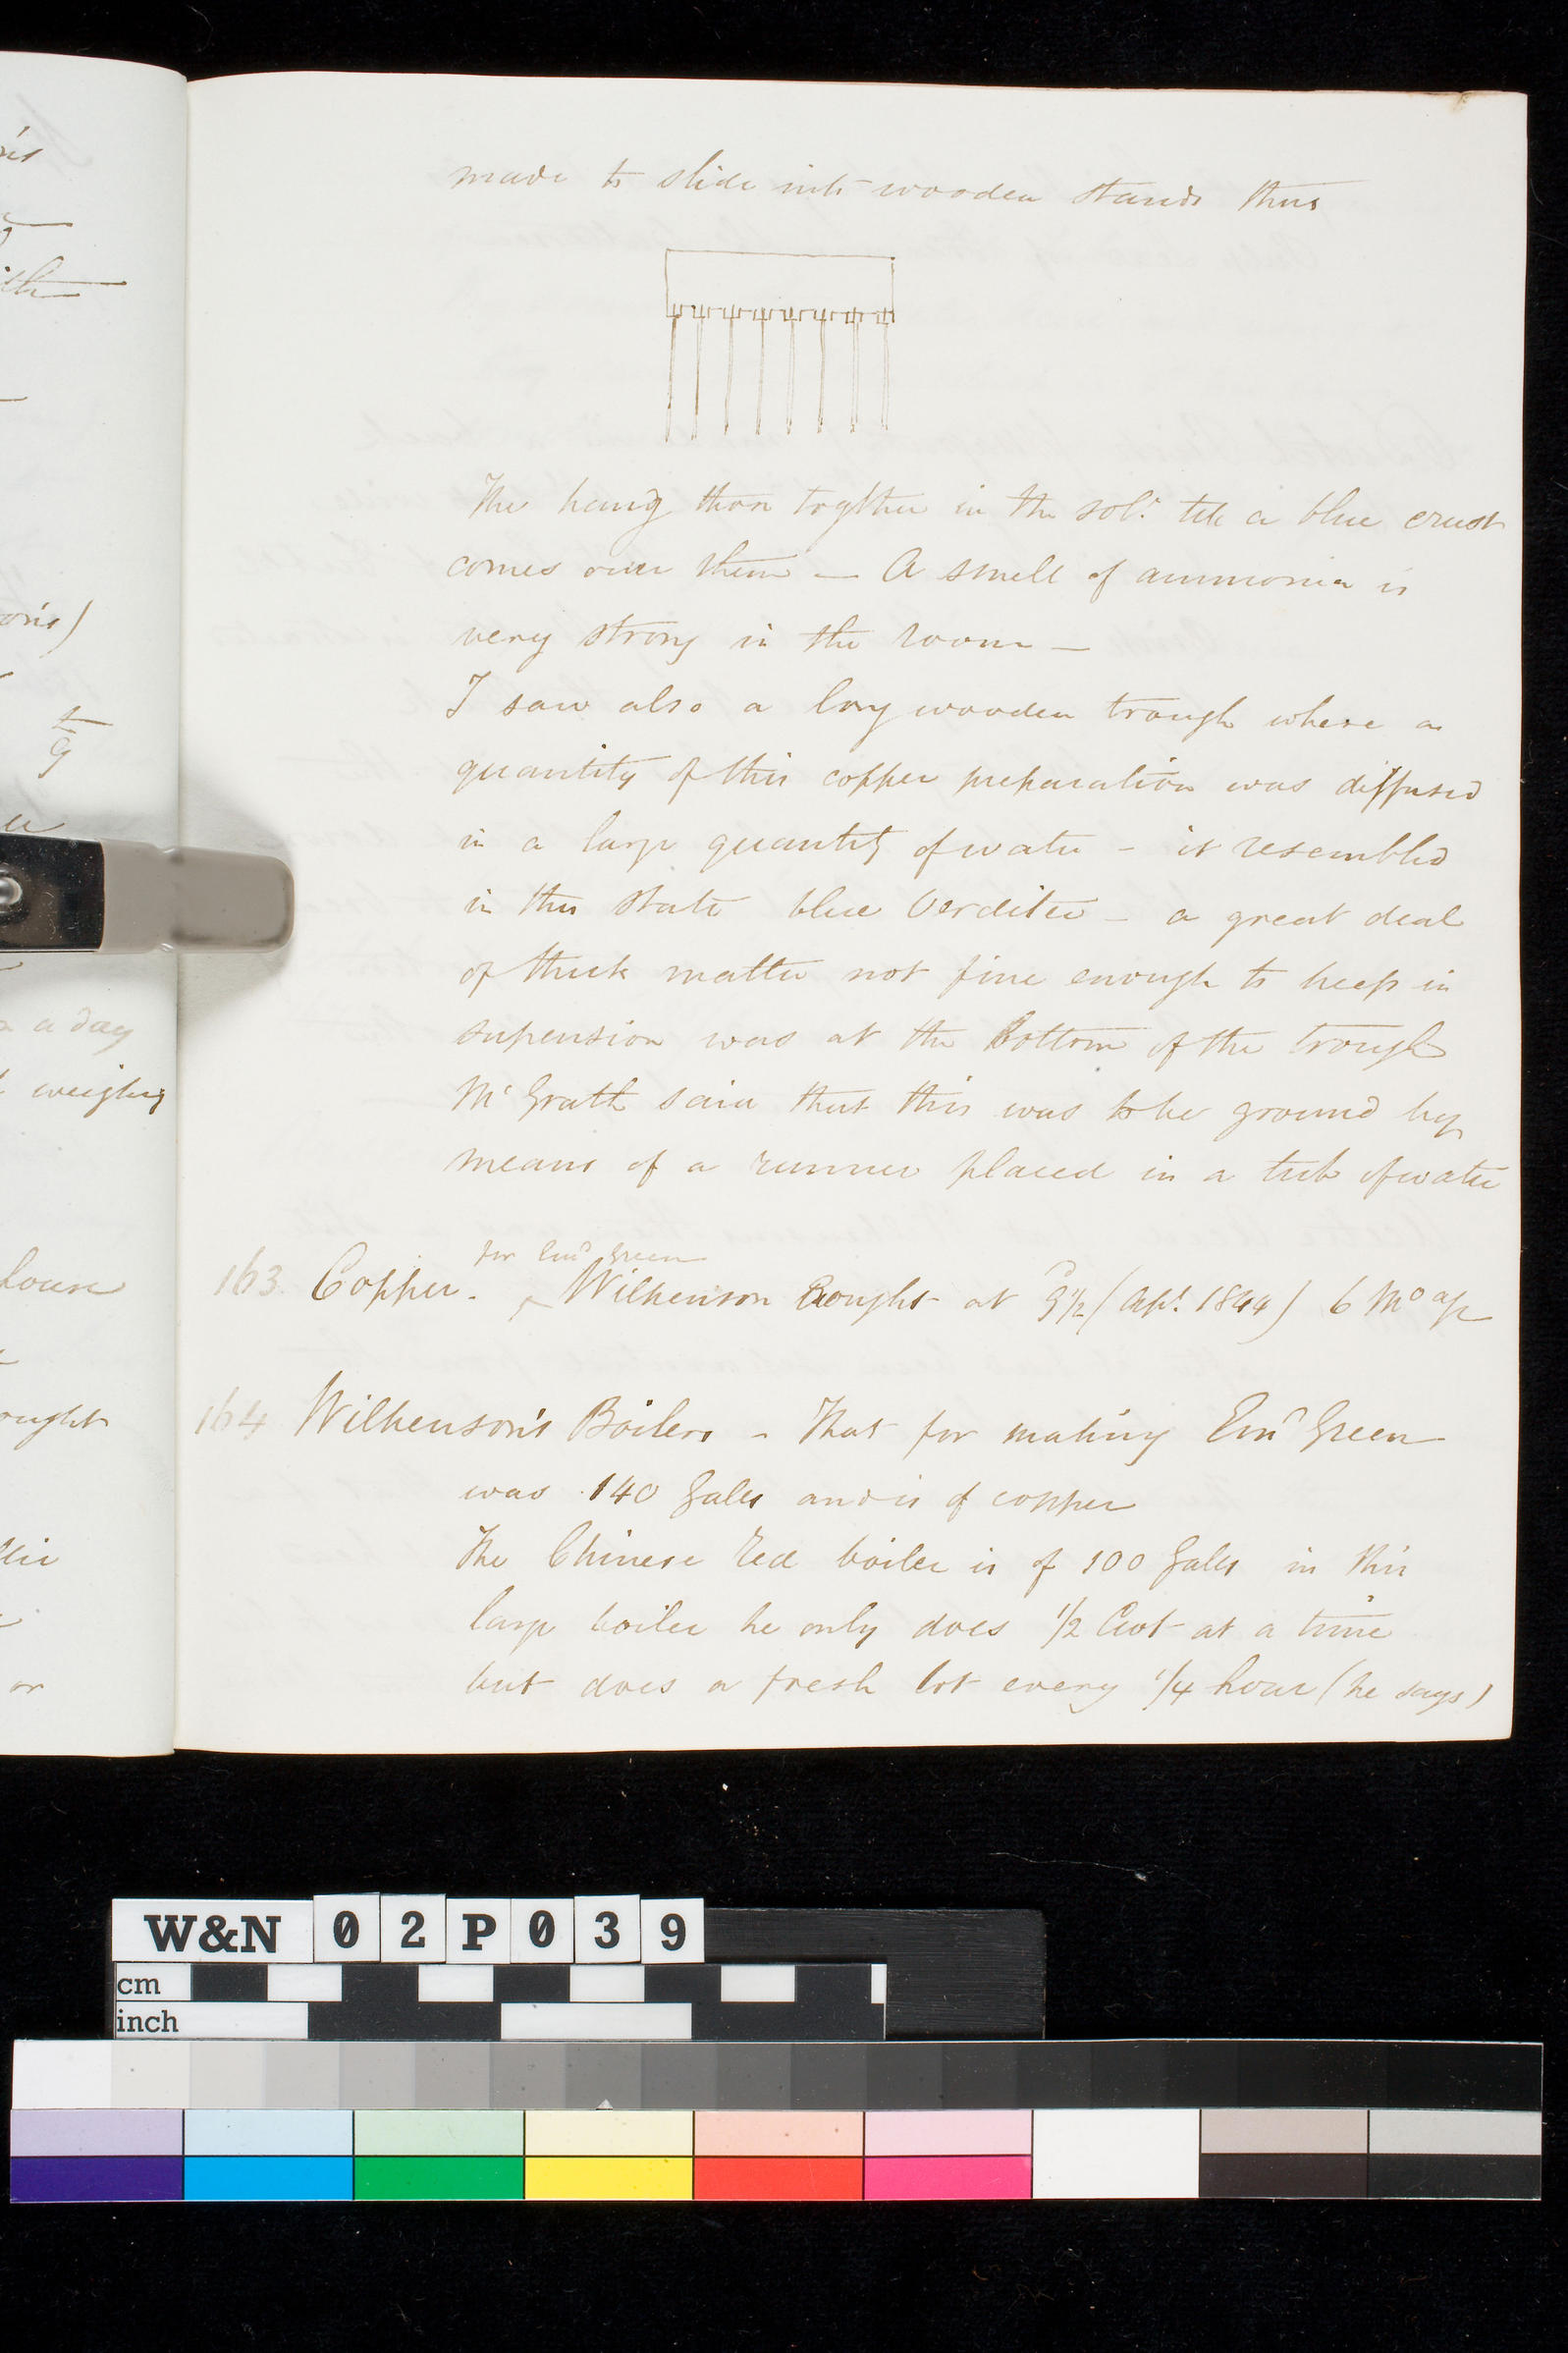 made to slide into wooden stands thus
The hang them togther in the sol.n till a blue crust
comes over them — A smell of ammonia is
very strong in the room —
I saw also a long wooden trough where a
quantity of this copper preparation was diffused
in a large quantity of water – it resembled
in this state blue Verditer – a great deal
of thick matter not fine enough to keep in
supension was at the bottom of the trough
Mc Grath said that this was to be ground by
means of a runner placed in a tub of water
for Em.d Green
163. Copper. ^ Wilkenson bought at 9½d (Apl. 1844) 6 Mo ago
164 Wilkenson's Boilers – That for making Emd Green
was 140 Galls and is of copper
The Chinese Red boiler is of 100 Galls in this
large boiler he only does 1/2 Cwt at a time
but does a fresh lot every 1/4 hour (he says)
on's)
a day
weighing
house
ought
or
W&N 02P039
cm
inch